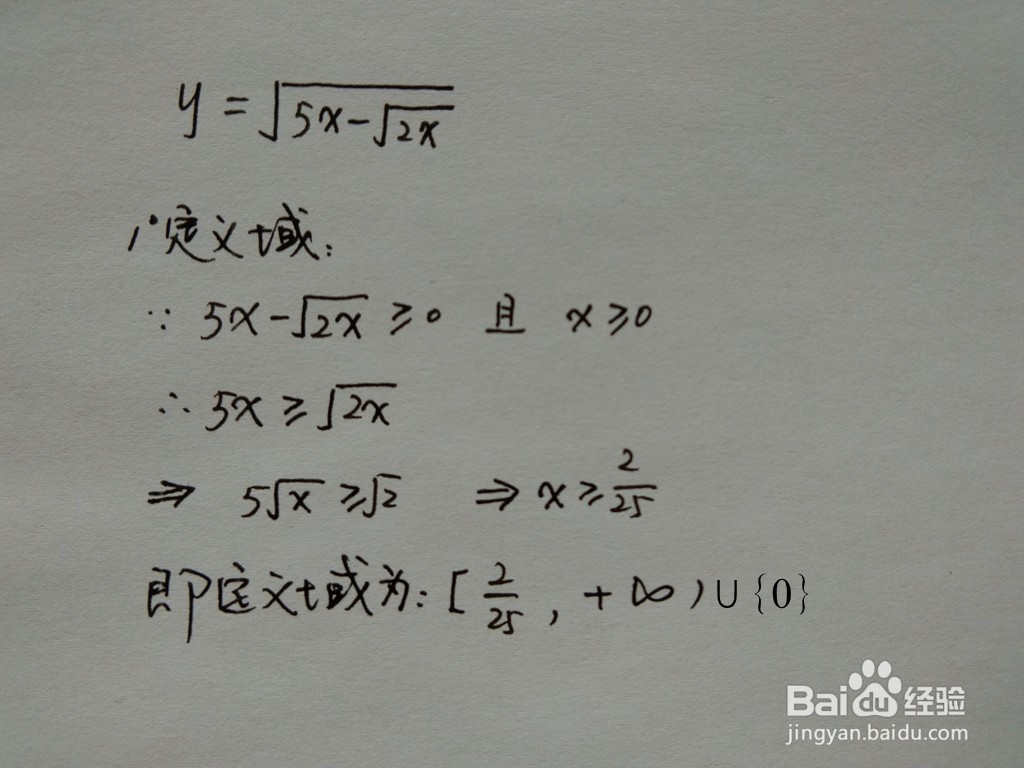 y = √(5x-√(2x))
1°定义域:
∵ 5x-√(2x) ≥ 0 且 x ≥ 0
∴ 5x ≥ √(2x)
⇒ 5√x ≥ √2 ⇒ x ≥ 2/25
即定义域为: [2/25, +∞)∪{0}
Baidu经验
jingyan.baidu.com